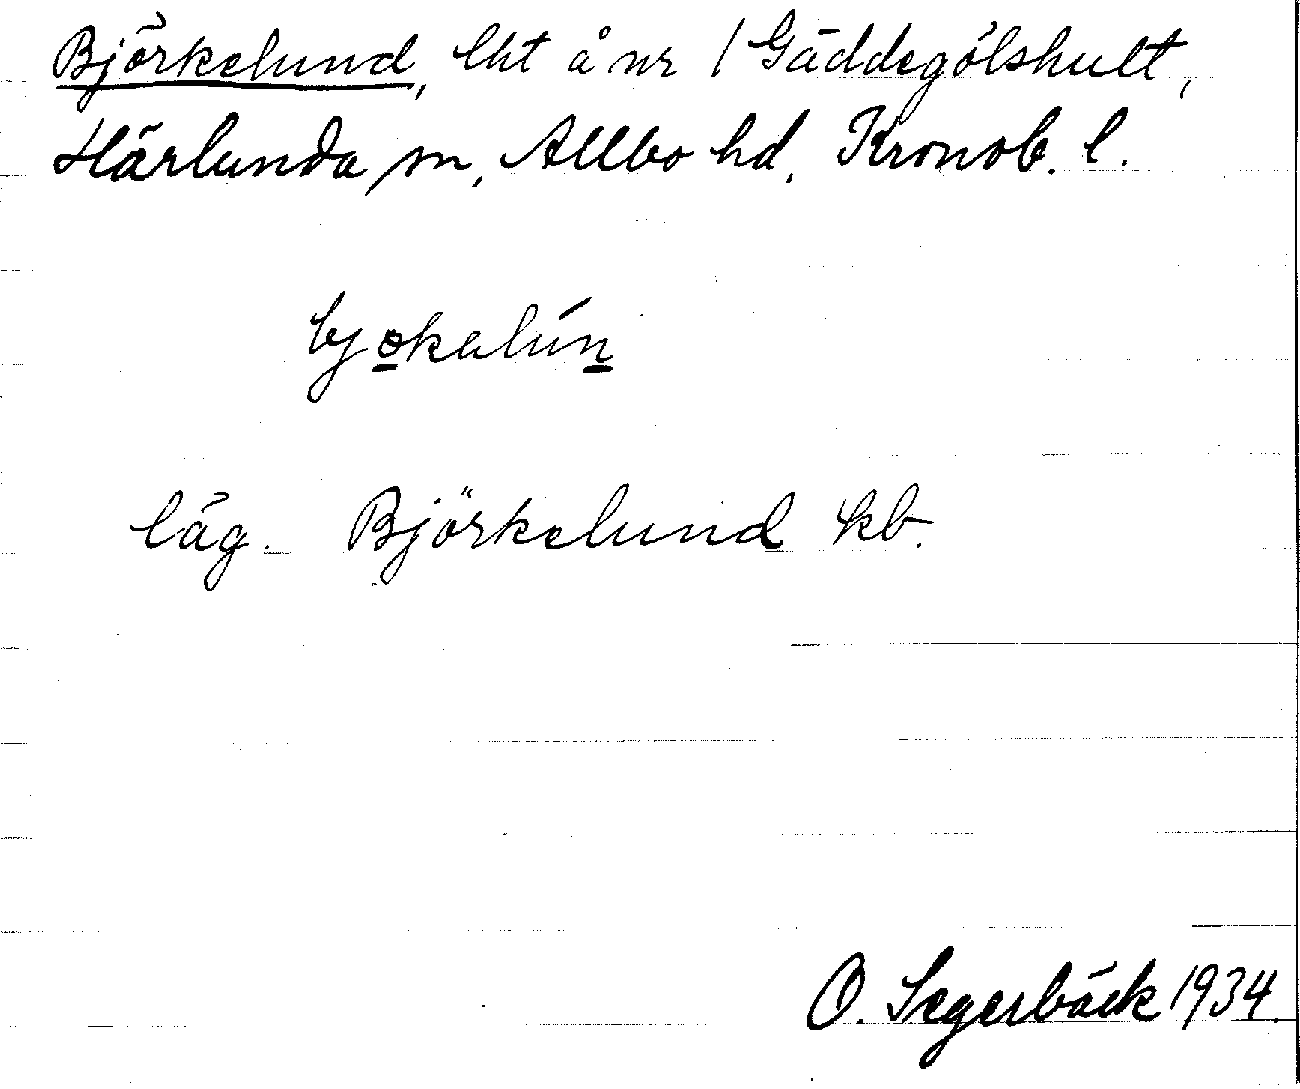 Björkelund, lht å nr 1 Gäddegölshult,
Härlunda sn, Allbo hd, Kronob. l.
bjo̲kalún̲
läg. Björkelund kb.
O. Segerbäck 1934.